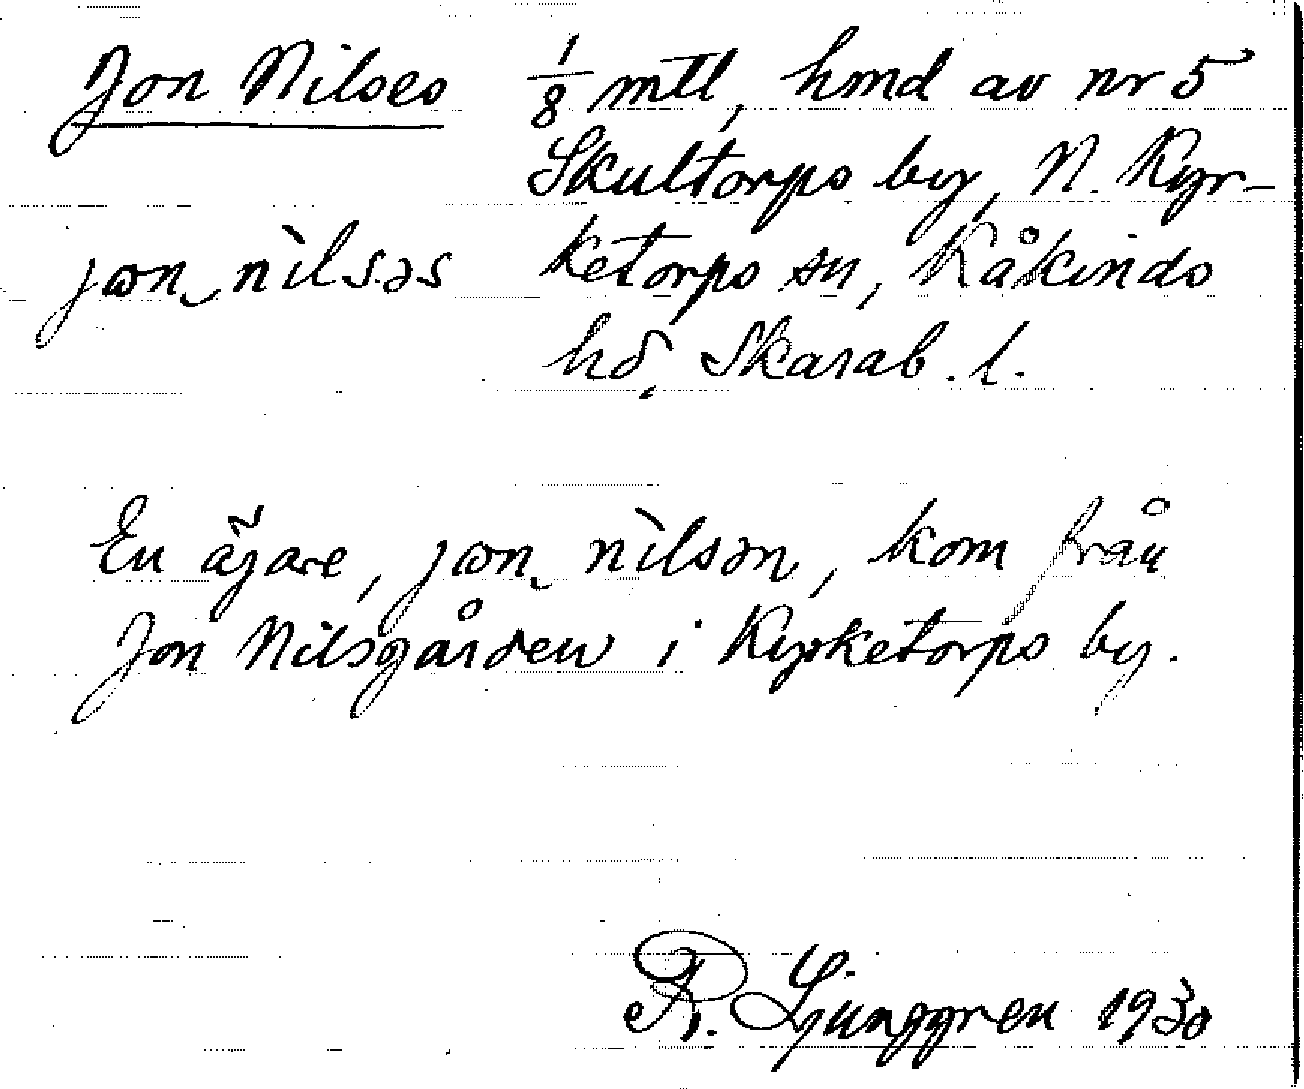 Jon Nilses 1/8 mtl, hmd av nr 5
Skultorps by, N. Kyr-
jωn‿nìlsəs ketorps sn, Kåkinds
hd, Skarab. l.
En ägare, jωn‿nìlsən, kom från
Jon Nilsgården i Kyrketorps by.
R. Ljunggren 1930